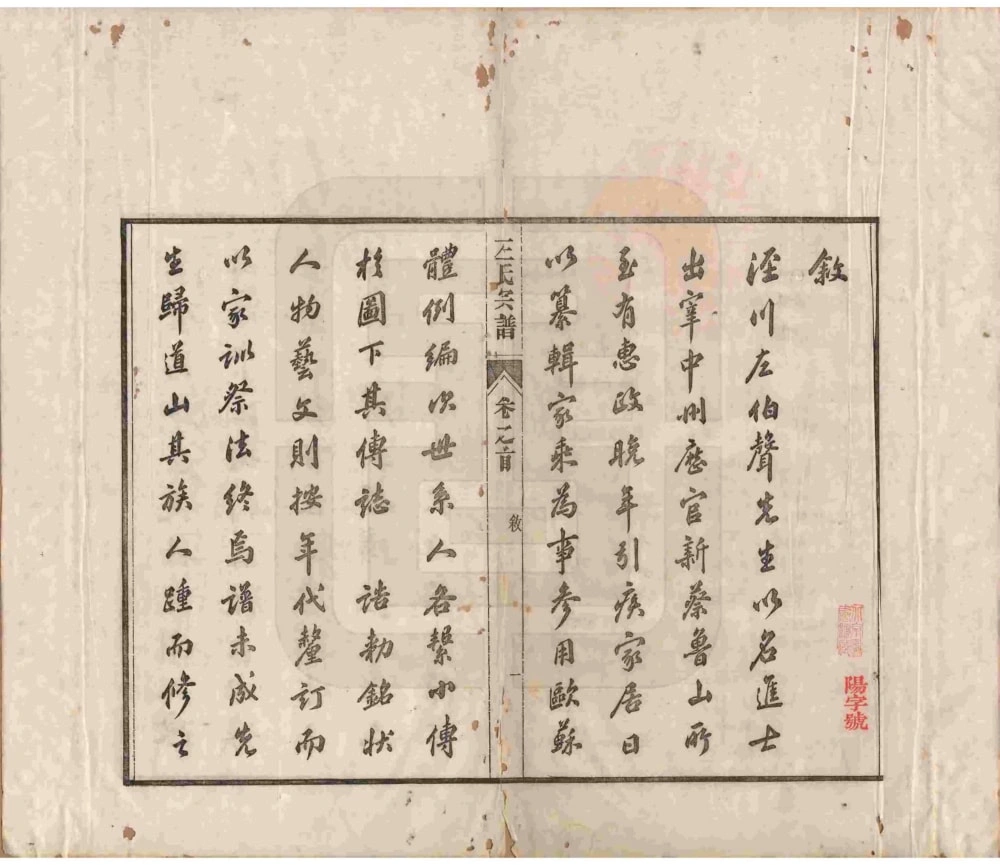 敘
涇川左伯聲先生以名進士
出宰中州歷官新蔡魯山所
至有惠政晚年引疾家居日
以纂輯家乘為事參用歐蘇
左氏宗譜
卷之首
敘
一
體例編次世系人各繫小傳
於圖下其傳誌　誥勅銘狀
人物藝文則按年代釐訂而
以家訓祭法終焉譜未成先
生歸道山其族人踵而修之
陽字號